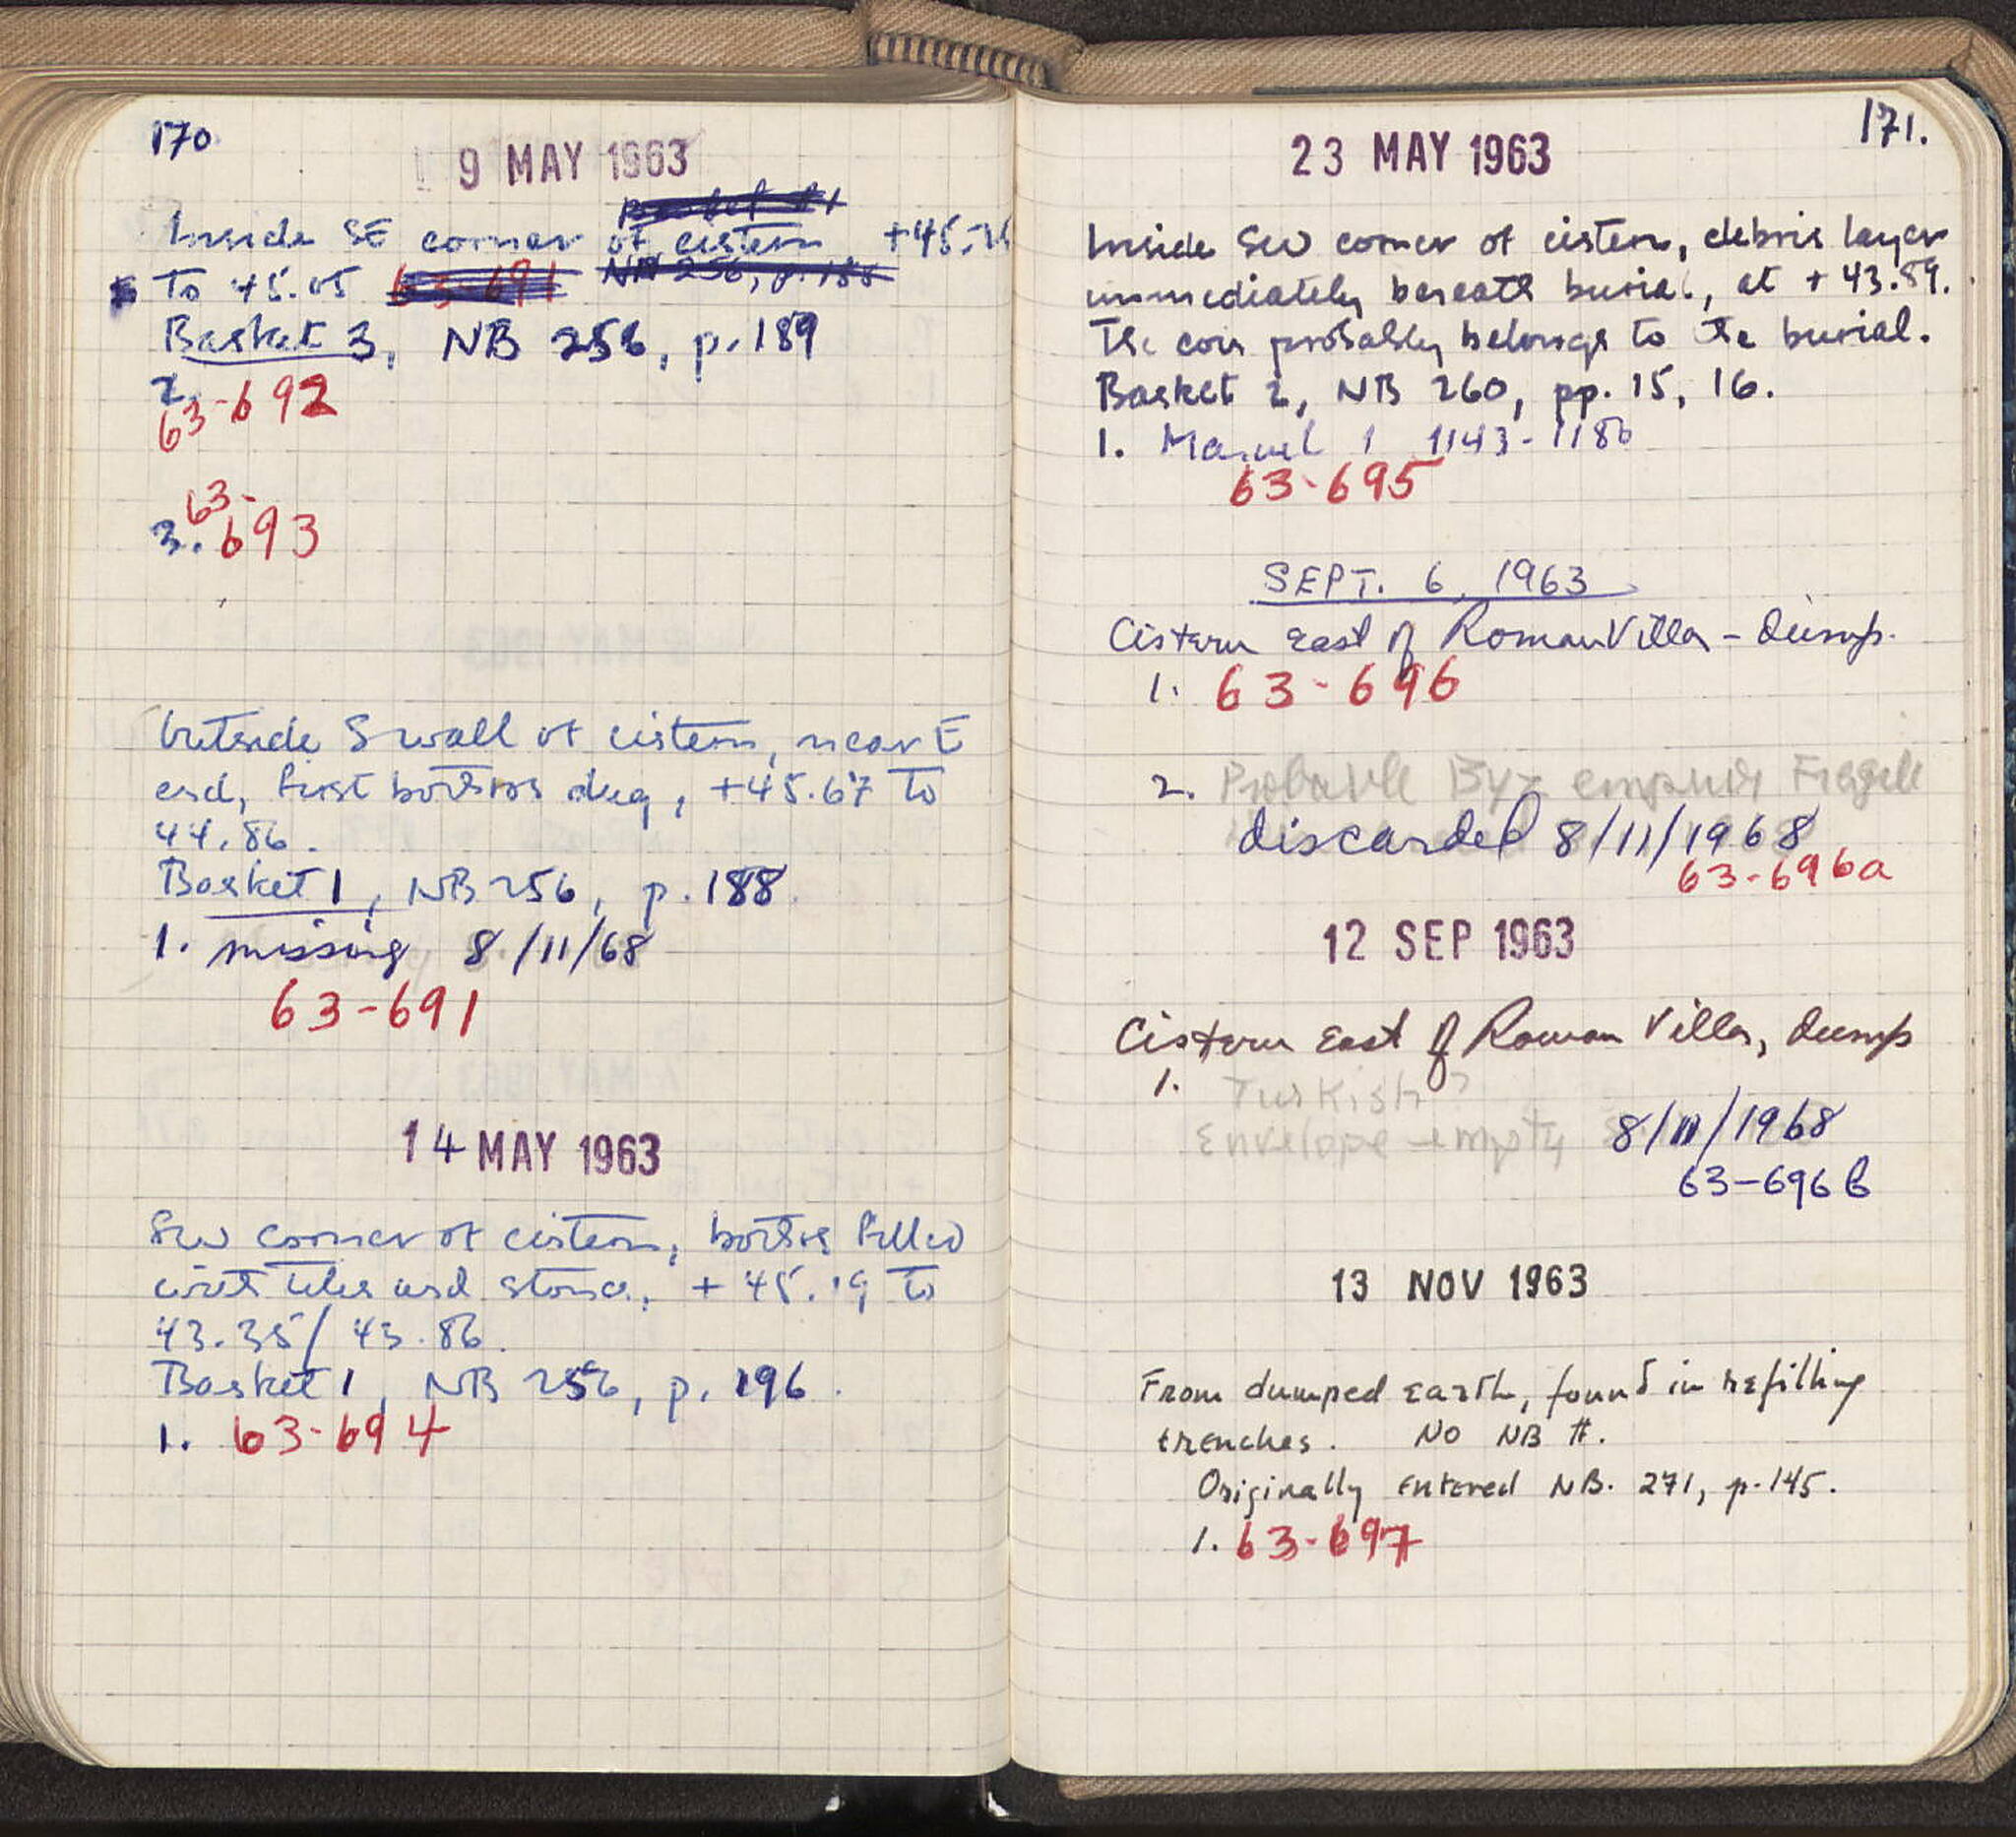 170
9 MAY 1963
Inside SE corner of cistern +45.
to 45.05 63-691 NB 256, p. 188
Basket 3, NB 256, p. 189
2.
63-692
63-
3. 693
Outside S wall of cistern, near E
end, first bothros dug, +45.67 to
44.86.
Basket 1, NB 256, p. 188
1. missing 8/11/68
63-691
14 MAY 1963
SW corner of cistern, bothros filled
with tiles and stones, +45.19 to
43.35/43.86.
Basket 1, NB 256, p. 196.
1. 63-694
171.
23 MAY 1963
Inside SW corner of cistern, debris layer
immediately beneath burial, at +43.89.
The coin probably belongs to the burial.
Basket 2, NB 260, pp. 15, 16.
1. Manuel I 1143-1180
63-695
SEPT. 6, 1963
Cistern East of Roman Villa - Dump.
1. 63-696
2. Probable Byz Fragile
discarded 8/11/1968
63-696a
12 SEP 1963
Cistern East of Roman Villa, Dump
1. Turkish?
Envelope empty 8/11/1968
63-696b
13 NOV 1963
From dumped earth, found in refilling
trenches. No NB #.
Originally entered NB. 271, p. 145.
1. 63-697